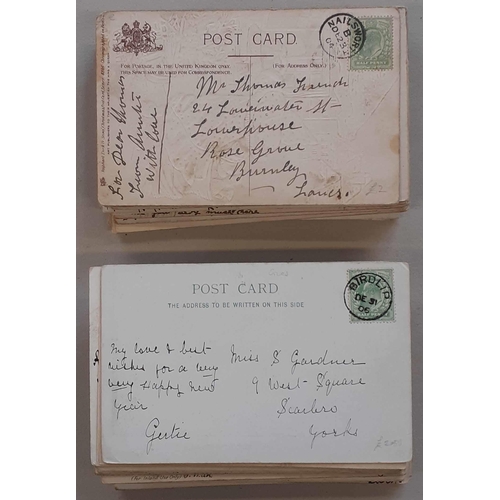 POST CARD.
FOR POSTAGE IN THE UNITED KINGDOM ONLY,
THIS SPACE MAY BE USED FOR CORRESPONDENCE.
(FOR ADDRESS ONLY.)
NAILSWOR
For Dear Thomas
From Auntie
With Love
Mr Thomas French
24 Lowerwater St
Lowerhouse
Rose Grove
Burnley
Lancs.
POST CARD
THE ADDRESS TO BE WRITTEN ON THIS SIDE
BIRDLIP
DE 31
My love & best
wishes for a very
very happy new
year
Gertie
Miss S Gardner
9 West Square
Scarbro
Yorks